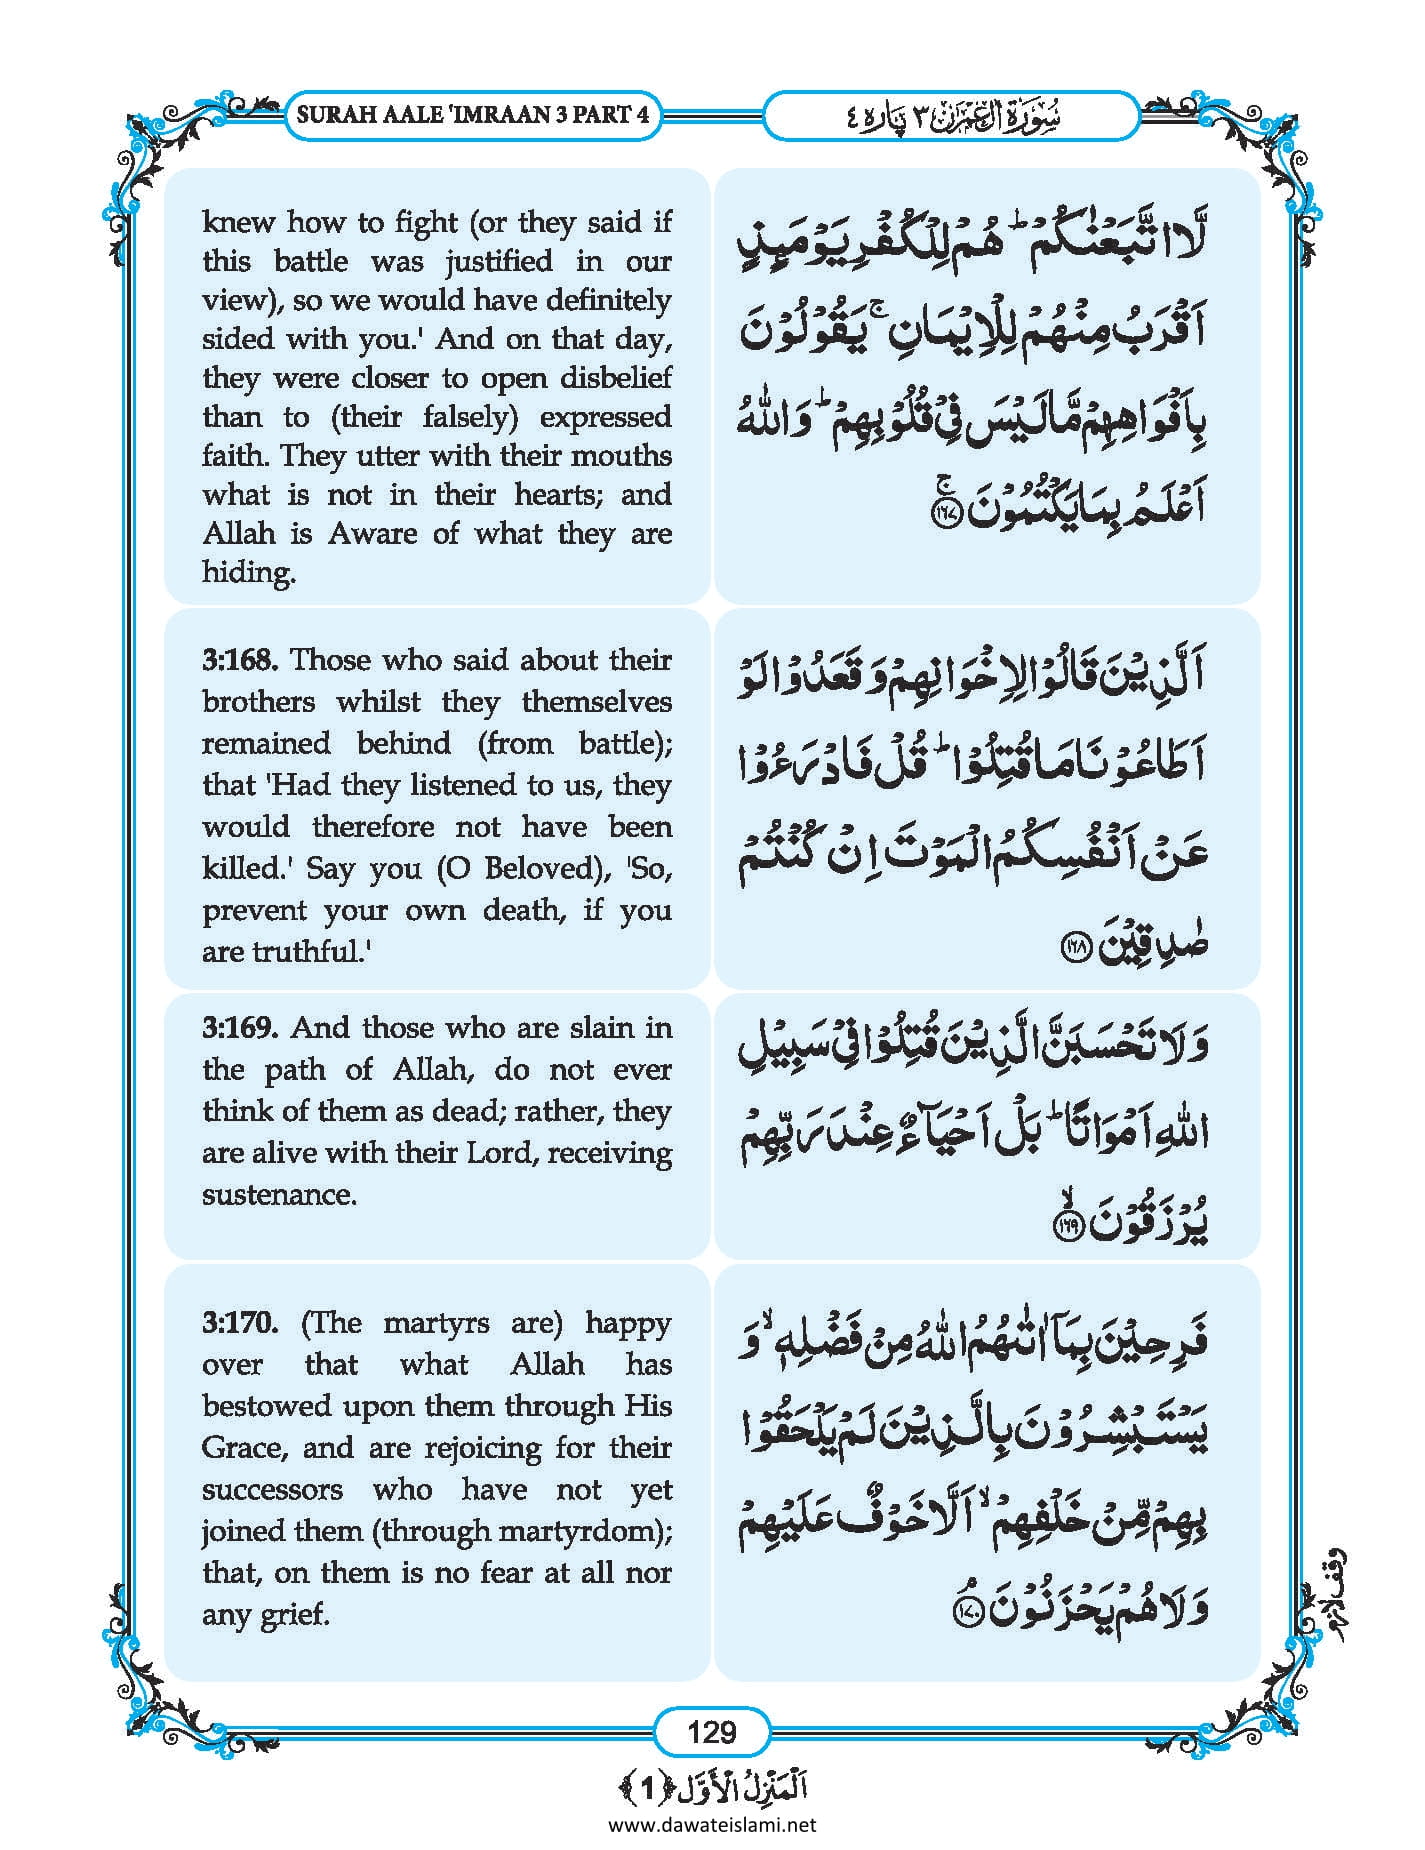 SURAH AALE 'IMRAAN 3 PART 4
سُوْرَةُ اٰلِ عِمْرٰن ٣ پَاره ٤
knew how to fight (or they said if
this battle was justified in our
view), so we would have definitely
sided with you.' And on that day,
they were closer to open disbelief
than to (their falsely) expressed
faith. They utter with their mouths
what is not in their hearts; and
Allah is Aware of what they are
hiding.
لَّا اتَّبَعْنٰكُمْ ؕ هُمْ لِلْكُفْرِ یَوْمَىِٕذٍ
اَقْرَبُ مِنْهُمْ لِلْاِیْمَانِ ۚ یَقُوْلُوْنَ
بِاَفْوَاهِهِمْ مَّا لَیْسَ فِیْ قُلُوْبِهِمْ ؕ وَاللّٰهُ
اَعْلَمُ بِمَا یَكْتُمُوْنَ ۚ ﴿١٦٧﴾
3:168. Those who said about their
brothers whilst they themselves
remained behind (from battle);
that 'Had they listened to us, they
would therefore not have been
killed.' Say you (O Beloved), 'So,
prevent your own death, if you
are truthful.'
اَلَّذِیْنَ قَالُوْا لِاِخْوَانِهِمْ وَ قَعَدُوْا لَوْ
اَطَاعُوْنَا مَا قُتِلُوْا ؕ قُلْ فَادْرَءُوْا
عَنْ اَنْفُسِكُمُ الْمَوْتَ اِنْ كُنْتُمْ
صٰدِقِیْنَ ﴿١٦٨﴾
3:169. And those who are slain in
the path of Allah, do not ever
think of them as dead; rather, they
are alive with their Lord, receiving
sustenance.
وَلَا تَحْسَبَنَّ الَّذِیْنَ قُتِلُوْا فِیْ سَبِیْلِ
اللّٰهِ اَمْوَاتًا ؕ بَلْ اَحْیَآءٌ عِنْدَ رَبِّهِمْ
یُرْزَقُوْنَ ۙ ﴿١٦٩﴾
3:170. (The martyrs are) happy
over that what Allah has
bestowed upon them through His
Grace, and are rejoicing for their
successors who have not yet
joined them (through martyrdom);
that, on them is no fear at all nor
any grief.
فَرِحِیْنَ بِمَاۤ اٰتٰىهُمُ اللّٰهُ مِنْ فَضْلِهٖ ۙ وَ
یَسْتَبْشِرُوْنَ بِالَّذِیْنَ لَمْ یَلْحَقُوْا
بِهِمْ مِّنْ خَلْفِهِمْ ۙ اَلَّا خَوْفٌ عَلَیْهِمْ
وَلَا هُمْ یَحْزَنُوْنَ ۘ ﴿١٧٠﴾
وقف لازم
129
اَلْمَنْزِلُ الْاَوَّل ﴿1﴾
www.dawateislami.net